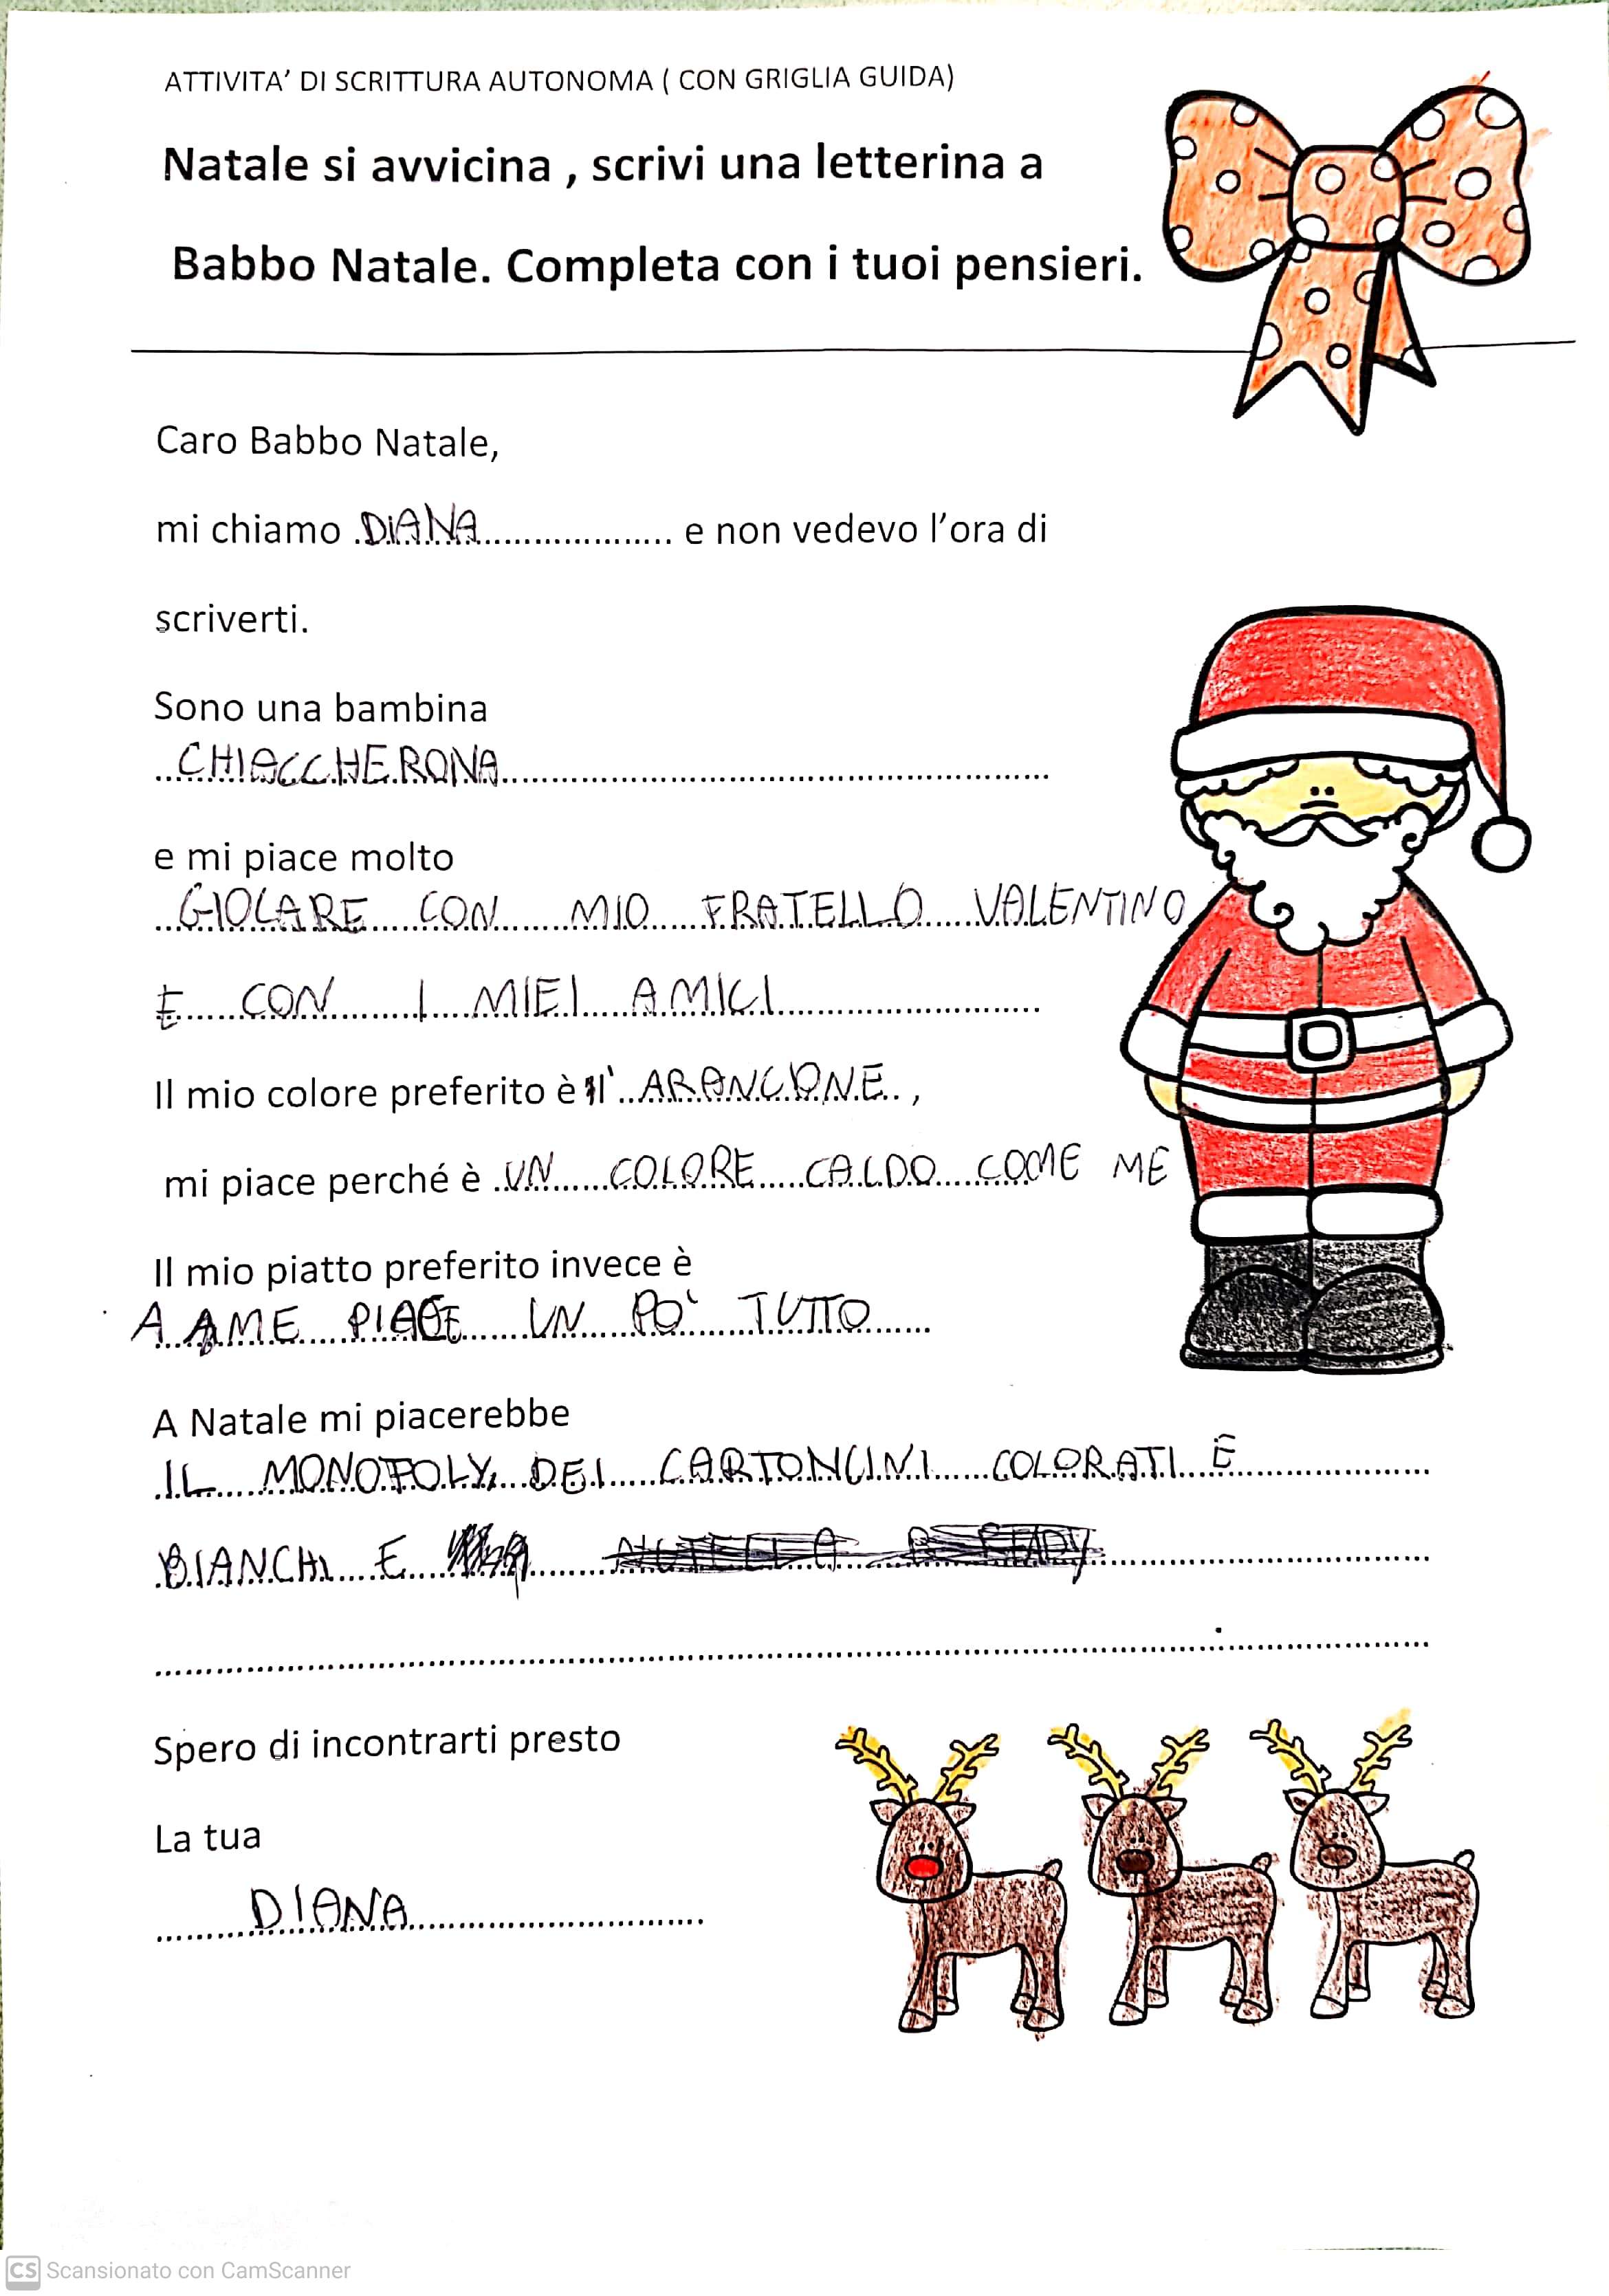 ATTIVITA’ DI SCRITTURA AUTONOMA ( CON GRIGLIA GUIDA)
Natale si avvicina , scrivi una letterina a
Babbo Natale. Completa con i tuoi pensieri.
Caro Babbo Natale,
mi chiamo DIANA e non vedevo l’ora di
scriverti.
Sono una bambina
CHIACCHERONA
e mi piace molto
GIOCARE CON MIO FRATELLO VALENTINO
E CON I MIEI AMICI
Il mio colore preferito è l' ARANCIONE ,
mi piace perché è UN COLORE CALDO COME ME
Il mio piatto preferito invece è
A ME PIACE UN PO' TUTTO
A Natale mi piacerebbe
IL MONOPOLY, DEI CARTONCINI COLORATI E
BIANCHI E
Spero di incontrarti presto
La tua
DIANA
CS Scansionato con CamScanner